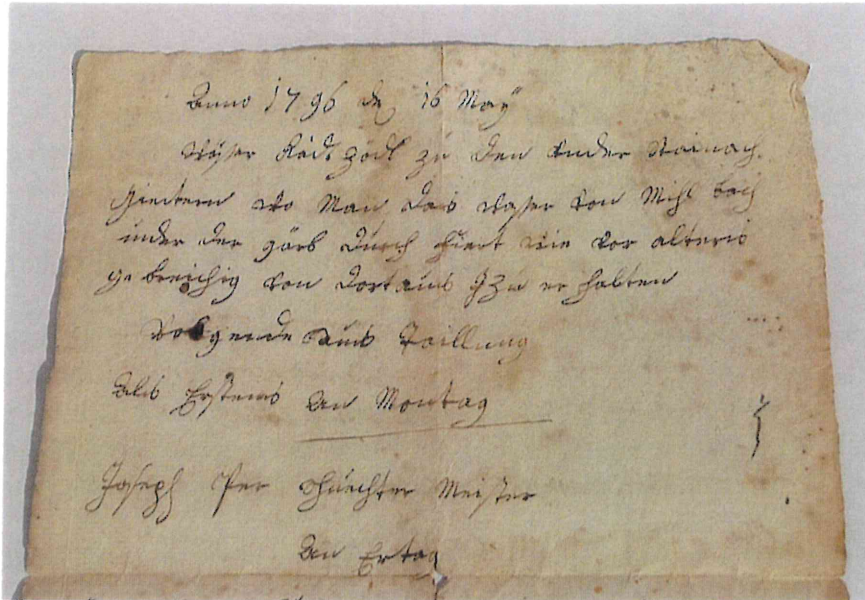 Anno 1796 de 16 May
Wasser Rädt zödl zu den under Rainach
Gieetern wo Man das wasser von Mihl bach
under der gärb durch Hiert wie vor alters
ge breichig von dort aus zu er halten
volgende aus Taillung
Als Erstens An Montag
Joseph Per Meister
An Ertag